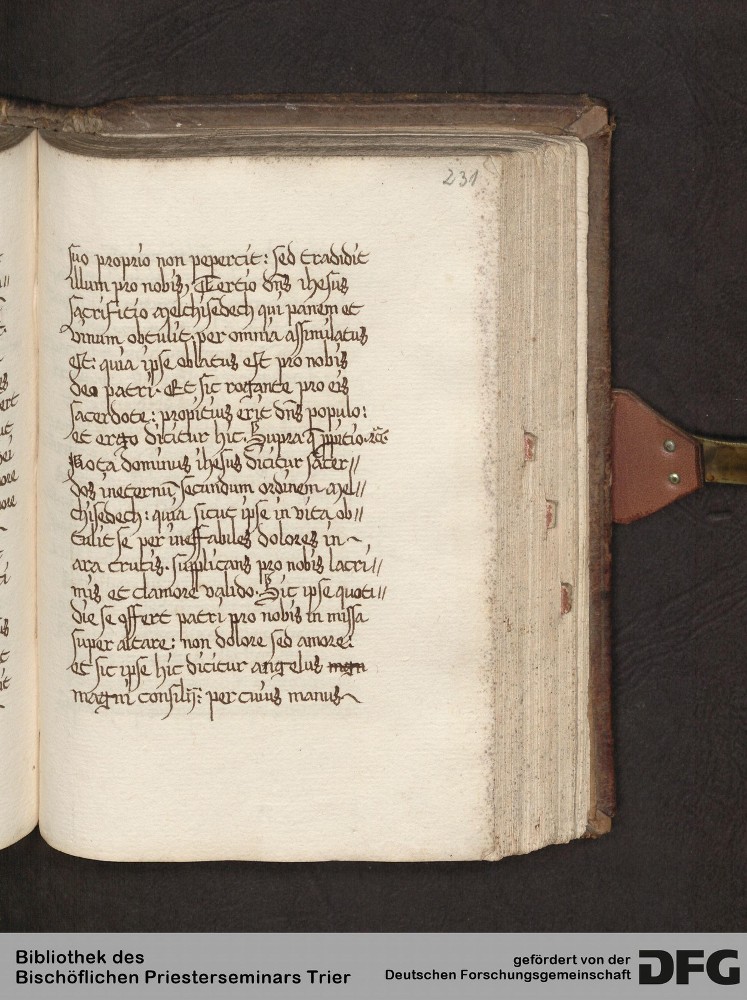 231
suo proprio non pepercit: sed tradidit
illum pro nobis, Tertio dns ihesus
sacrificio melchisedech qui panem et
vinum obtulit. per omnia assimilatus
est: quia ipse oblatus est pro nobis
deo patri. Et sic rogante pro eis
sacerdote: propitius erit dns populo:
et ergo dicitur hic. Supra q̄ ꝓpitio. ⁊c̄.
Nota dominus ihesus dicitur sacer//
dos ineternū, secundum ordinem mel//
chisedech: quia sicut ipse in vita ob//
tulit se per ineffabiles dolores in
ara crucis. supplicans pro nobis lacri//
mis et clamore valido. Sic ipse quoti//
die se offert patri pro nobis in missa
super altare: non dolore sed amore:
et sic ipse hic dicitur angelus mgn
magni consilij: per cuius manus
Bibliothek des
Bischöflichen Priesterseminars Trier
gefördert von der
Deutschen Forschungsgemeinschaft
DFG